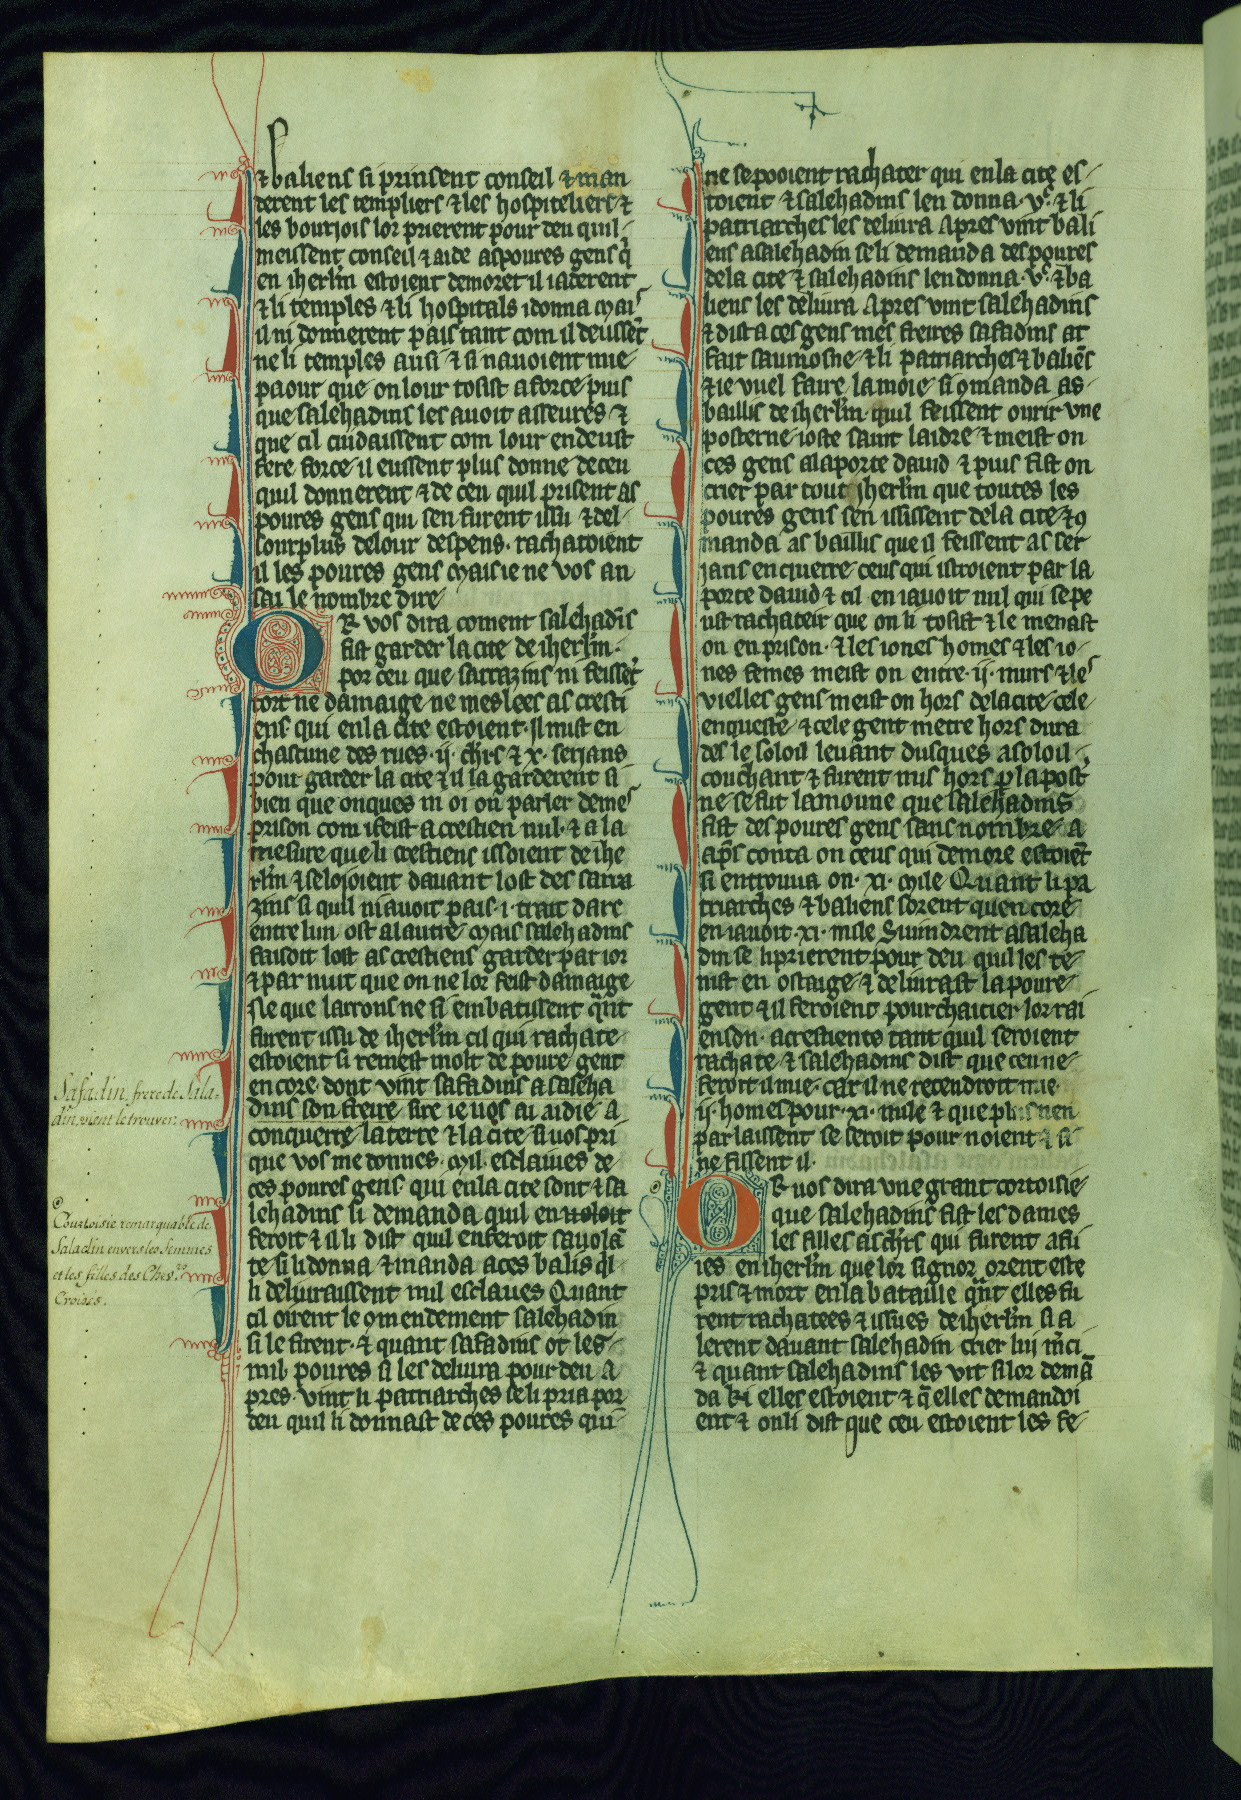 ⁊ baliens si prinsent conseil ⁊ man
derent les templiers ⁊ les hospiteliers ⁊
les bourjois lor prierent pour deu quil
meussent conseil ⁊ aide as poures gens q̄
en iherlm̄ estoient demoret il iaderent
⁊ li temples ⁊ li hospitals i donna mais
il ni donnerent pais tant com il deussēt
ne li temples ausi ⁊ si nauoient mie
paour que on lour tosist a force puis
que salehadins les auoit asseures ⁊
que cil cuidaissent com lour en deust
fere force il eussent plus donne de ceu
quil donnerent ⁊ de ceu quil prisent as
poures gens qui sen furent issu ⁊ del
sourplus de lour despens · rachatoient
il les poures gens mais ie ne vos an
sai le nombre dire
OR vos dira coment salehadīs
fist garder la cite de iherlm̄ ·
por ceu que sarrazins ni feissēt
tort ne damaige ne meslees as cresti
ens qui en la cite estoient · Il mist en
chascune des rues · ij · ch̄rs ⁊ x · serjans
pour garder la cite ⁊ il la garderent si
bien que onques ni oi on parler de mes
prison com i feist a crestien nul · ⁊ a la
mesure que li crestiens issoient de ihe
rlm̄ ⁊ se lojoient dauant lost des sarra
zins si quil ni auoit pais · i · trait darc
entre lun ost a lautre mais salehadins
faisoit lost as crestiens garder par ior
⁊ par nuit que on ne lor feist damaige
Ne que larrons ne si embatissent qānt
furent issu de iherlm̄ cil qui rachate
estoient si remest molt de poure gent
encore dont vint safadins a saleha
dins son freire sire ie uos ai aidie a
conquerre la terre ⁊ la cite si uos pri
que vos me donnes · mil esclaues de
ces poures gens qui en la cite sont ⁊ sa
lehadins si demanda quil en uoloit
feroit ⁊ il li dist quil en feroit sa uolā
te si li donna ⁊ manda a ces balis qĩl
li deliuraissent mil esclaues Quant
cil oirent le ꝯmendement salehadin
si le firent · ⁊ quant safadins ot les
mil poures si les deliura pour deu a
pres · vint li patriarches se li pria por
deu quil li donnast de ces poures qui
Safadin, frere de Sala-
din, vient le trouver.
Courtoisie remarquable de
Saladin envers les femmes
et les filles des Chers
Croisés.
ne se pooient rachater qui en la cite es
toient ⁊ salehadins len donna · vc · ⁊ li
patriarches les deliura Apres vint bali
ens a salehadin se li demanda des poures
de la cite ⁊ salehadins len donna · vc · ⁊ ba
liens les deliura Apres vint salehadins
⁊ dist a ces gens mes freires safadins at
fait saumosne ⁊ li patriarches ⁊ baliēs
⁊ ie vuel faire la moie si ꝯmanda as
baillis de iherlm̄ · quil feissent ourir vne
posterne ioste saint laidre ⁊ meist on
ces gens a la porte dauid ⁊ puis fist on
crier par tout iherlm̄ que toutes les
poures gens sen ississent de la cite ⁊ ꝯ
manda as baillis que il feissent as ser
jans enquerre ceus qui istroient par la
porte dauid ⁊ cil en iauoit nul qui se pe
ust rachateir que on li tosist ⁊ le menast
on en prison · ⁊ les iones homes ⁊ les io
nes femes meist on entre · ij · murs ⁊ les
vielles gens meist on hors de la cite cele
enqueste ⁊ cele gent metre hors dura
des le soloil leuant dusques a soloil
couchant ⁊ furent mis hors ꝑ la post
ne se fut lamoune que salehadins
fist des poures gens sans nombre · a
ap̄s conta on ceus qui demore estoiēt
si en trouua on · xi · mile Quant li pa
triarches ⁊ baliens sorent quencore
en iauoit · xi · mile Si uindrent a saleha
din se li prierent pour deu quil les te
nist en ostaige ⁊ deliurast la poure
gent ⁊ il feroient pourchaicier lor rai
enson · a crestiens tant quil seroient
rachate ⁊ salehadins dist que ceu ne
feroit il mie · car il ne retendroit mie
ij · homes pour · xi · mile ⁊ que plus nen
parlaissent se seroit pour noient ⁊ si
ne fissent il ·
OR uos dira vne grant cortoisie
que salehadins fist les dames
les filles as ch̄rs qui furent a fu
ies en iherlm̄ que lor signor orent este
pris ⁊ mort en la bataille qānt elles fu
rent rachatees ⁊ issues de iherlm̄ si a
lerent dauant salehadin crier lui m̄ci
⁊ quant salehadins les vit si lor demā
da ki elles estoient ⁊ q̄ elles demandoi
ent ⁊ on li dist que ceu estoient les fe